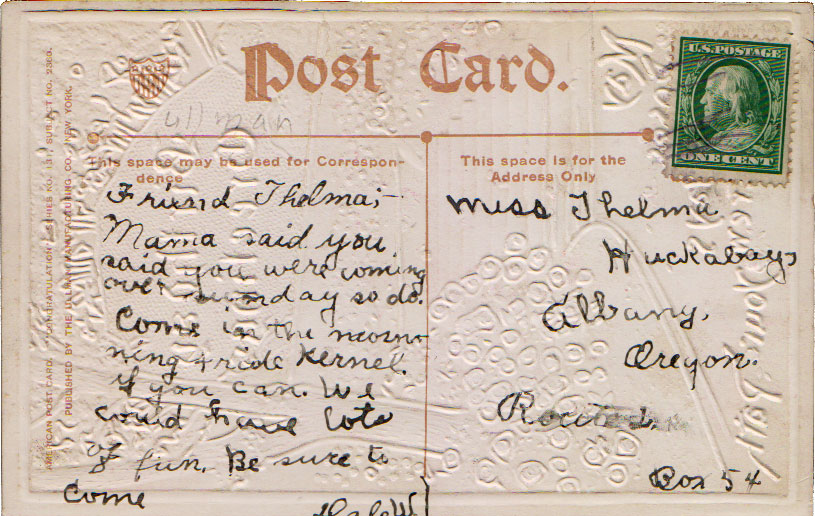 Post Card.
U.S. POSTAGE
ONE CENT
ullman
This space may be used for Correspon-
dence
This space is for the
Address Only
AMERICAN POST CARD. "CONGRATULATION" SERIES NO. 131 SUBJECT NO.
PUBLISHED BY THE ULLMAN MANUFACTURING CO., NEW YORK
Friend Thelma;-
Mama said you
said you were coming
over sunday so do.
Come in the mosno-
ning + ride Kernel.
if you can. We
could have lots
of fun. Be sure to
come
Miss Thelma
Huckabays
Albany,
Oregon.
Route
Box 54